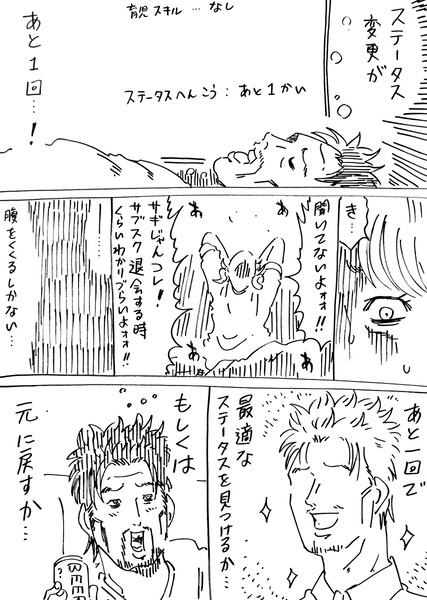 ステータス
変更が
育児スキル…なし
ステータスへんこう：あと１かい
あと１回…！
き…
聞いてないよォォ!!
あ
あ
あ
あ
サギじゃんコレ！
サブスク退会する時
くらいわかりづらいよォォ!!
腹をくくるしかない…
あと一回で
最適な
ステータスを見つけるか…
もしくは
元に戻すか…
BEER